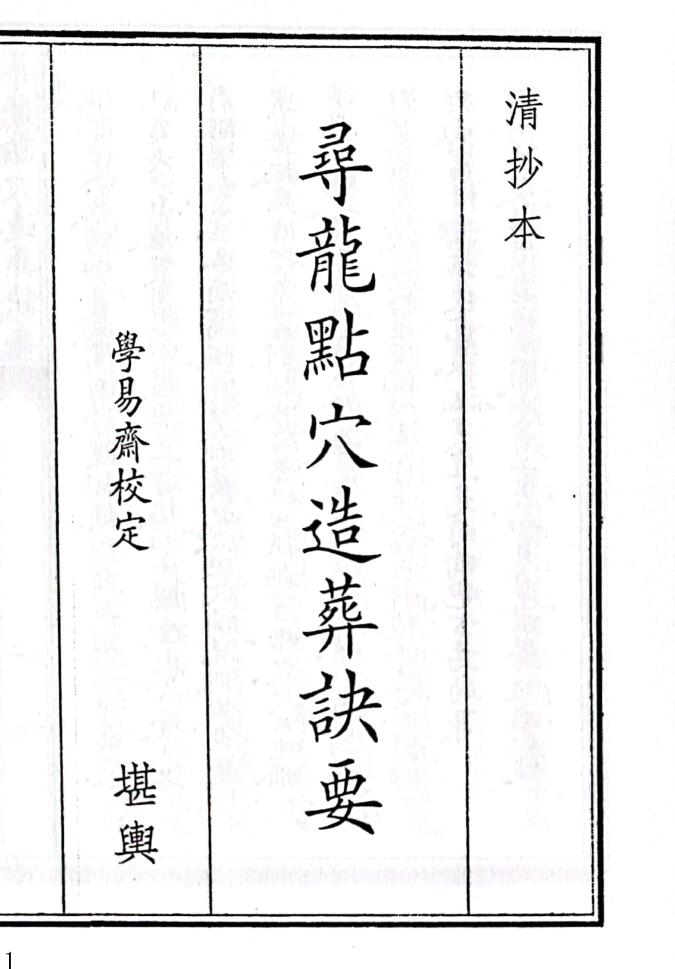 清抄本
尋龍點穴造葬訣要
學易齋校定
堪輿
1